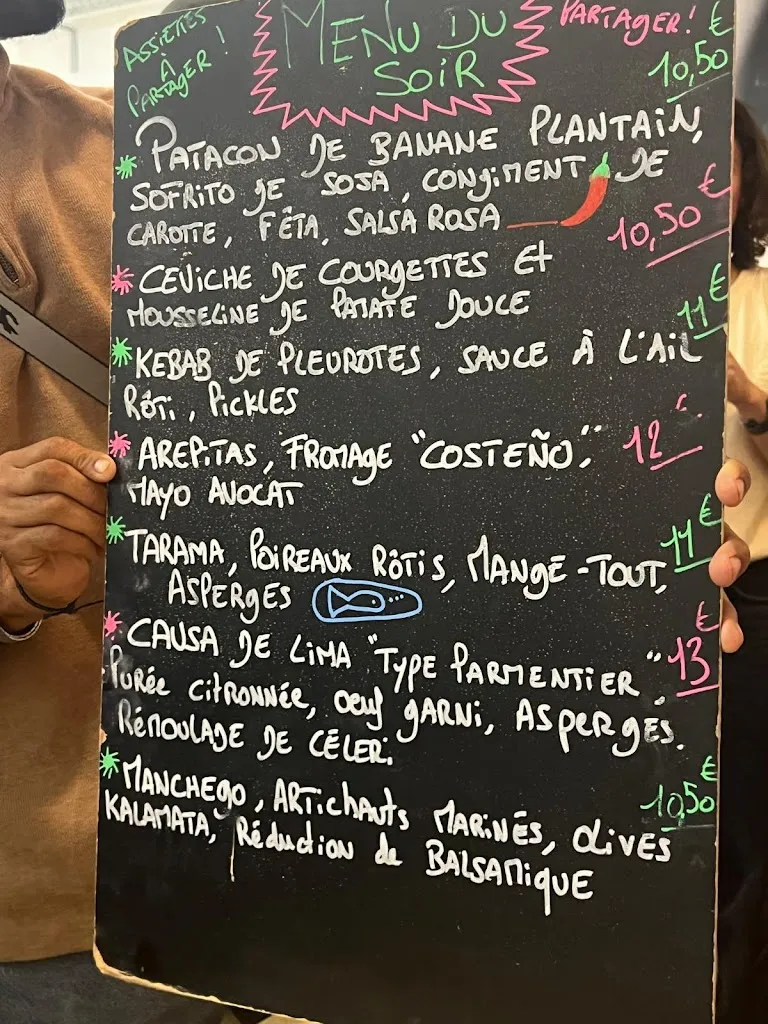 ASSIETTES
À
PARTAGER !
MENU DU
SOIR
PARTAGER !
10,50 €
* PATACON DE BANANE PLANTAIN,
SOFRITO DE SOJA, CONDIMENT DE
CAROTTE, FÊTA, SALSA ROSA
10,50 €
* CEVICHE DE COURGETTES ET
MOUSSELINE DE PATATE DOUCE
11 €
* KEBAB DE PLEUROTES, SAUCE À L'AIL
RÔTI, PICKLES
12 €
* AREPITAS, FROMAGE "COSTEÑO",
MAYO AVOCAT
11 €
* TARAMA, POIREAUX RÔTIS, MANGE-TOUT,
ASPERGES
13 €
* CAUSA DE LIMA "TYPE PARMENTIER".
PURÉE CITRONNÉE, OEUF GARNI, ASPERGES.
RÉMOULADE DE CÉLERI.
10,50 €
* MANCHEGO, ARTICHAUTS MARINÉS, OLIVES
KALAMATA, RÉDUCTION DE BALSAMIQUE